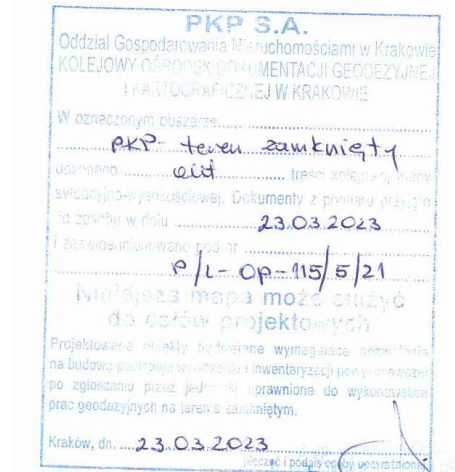 PKP S.A.
Oddział Gospodarowania Nieruchomościami w Krakowie
KOLEJOWY OŚRODEK DOKUMENTACJI GEODEZYJNEJ
I KARTOGRAFICZNEJ W KRAKOWIE
W oznaczonym obszarze
PKP- teren zamknięty
treści kolejowej mapy
sytuacyjno-wysokościowej. Dokumenty z pomiaru przyjęto
do zasobu w dniu 23.03.2023
i zaewidencjonowano pod nr
P/L-OP-115/5/21
Niniejsza mapa może służyć
do celów projektowych
Projektowane obiekty budowlane wymagające pozwolenia
na budowę podlegają wytyczeniu i inwentaryzacji powykonawczej
po zgłoszeniu przez jednostki uprawnione do wykonawstwa
prac geodezyjnych na terenie zamkniętym.
Kraków, dn. 23.03.2023
pieczęć i podpis osoby upoważnionej